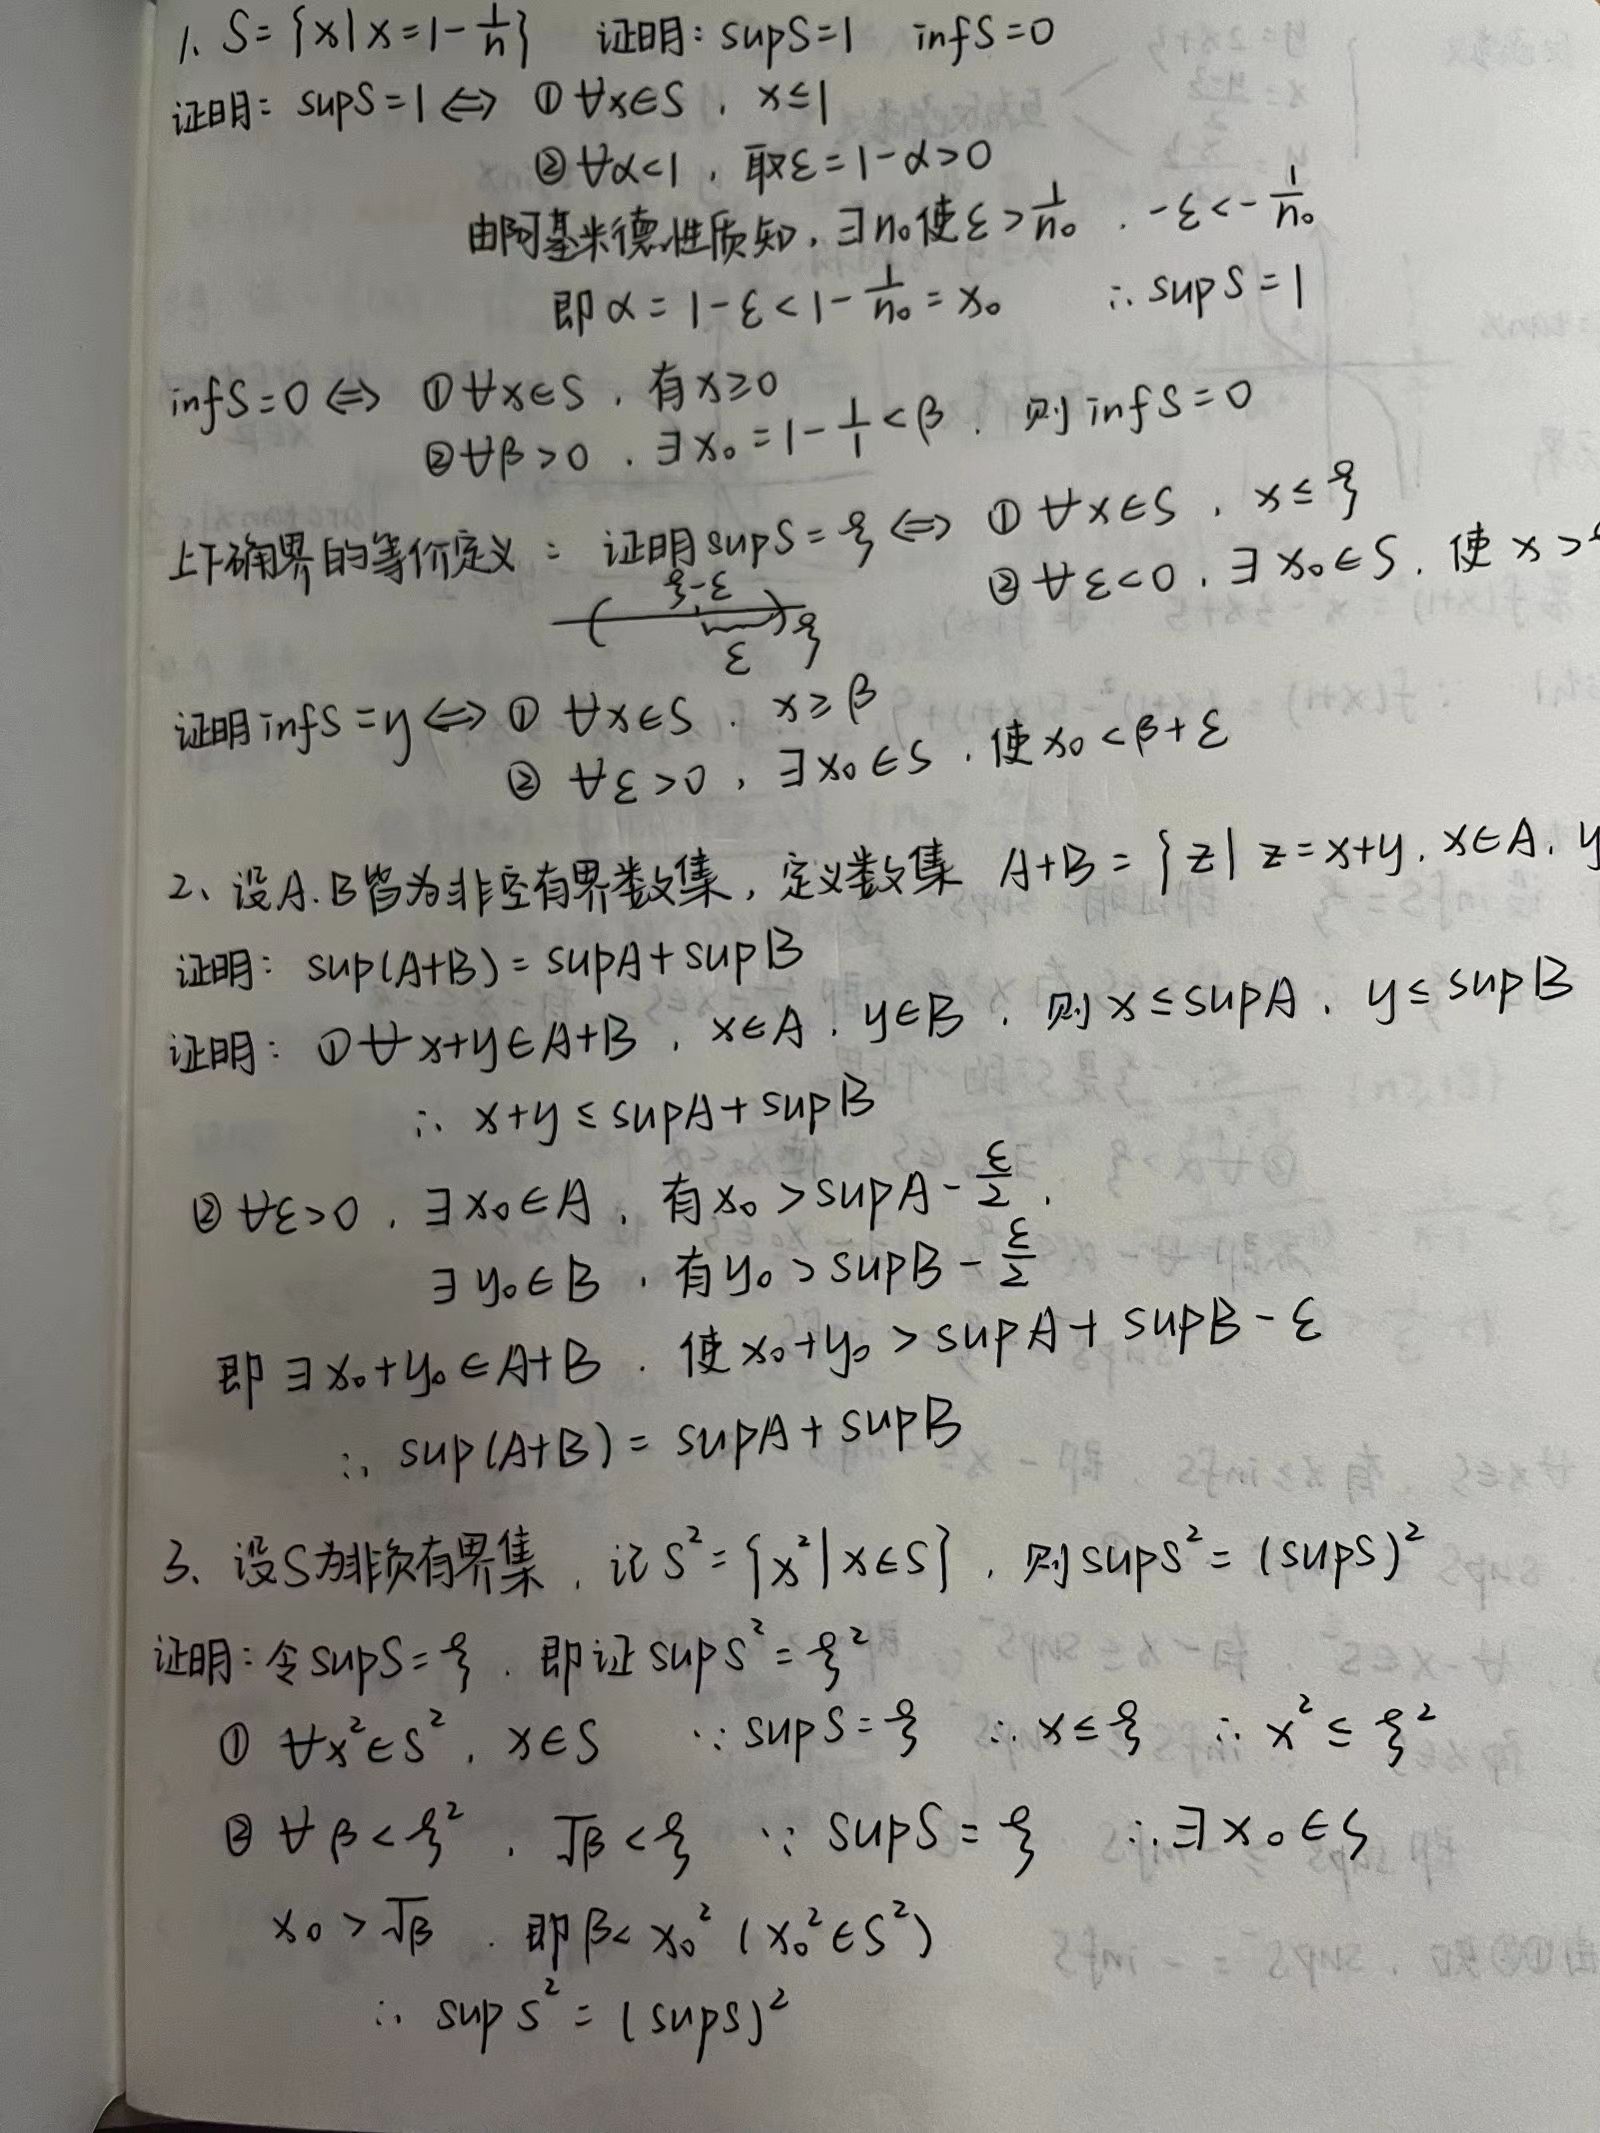 1、S={x|x=1-1/n} 证明: supS=1 infS=0
证明: supS=1⇔ ①∀x∈S, x≤1
②∀α<1, 取ε=1-α>0
由阿基米德性质知, ∃n₀使ε>1/n₀, -ε<-1/n₀
即α=1-ε<1-1/n₀=x₀ ∴supS=1
infS=0⇔ ①∀x∈S, 有x≥0
②∀β>0, ∃x₀=1-1/1<β, 则infS=0
上下确界的等价定义: 证明supS=ξ⇔ ①∀x∈S, x≤ξ
②∀ε<0, ∃x₀∈S, 使x>
ξ-ε
ξ
ε
证明infS=y⇔ ① ∀x∈S, x≥β
② ∀ε>0, ∃x₀∈S, 使x₀<β+ε
2、设A.B皆为非空有界数集, 定义数集 A+B={z|z=x+y, x∈A, y
证明: sup(A+B)=supA+supB
证明: ①∀x+y∈A+B, x∈A, y∈B, 则x≤supA, y≤supB
∴ x+y≤supA+supB
②∀ε>0, ∃x₀∈A, 有x₀>supA-ε/2,
∃y₀∈B, 有y₀>supB-ε/2
即∃x₀+y₀∈A+B, 使x₀+y₀>supA+supB-ε
∴ sup(A+B)=supA+supB
3、设S为非负有界集, 记S²={x²|x∈S}, 则supS²=(supS)²
证明: 令supS=ξ, 即证supS²=ξ²
① ∀x²∈S², x∈S ∵supS=ξ ∴x≤ξ ∴x²≤ξ²
② ∀β<ξ², √β<ξ ∵supS=ξ ∴∃x₀∈S
x₀>√β, 即β<x₀² (x₀²∈S²)
∴ supS²=(supS)²